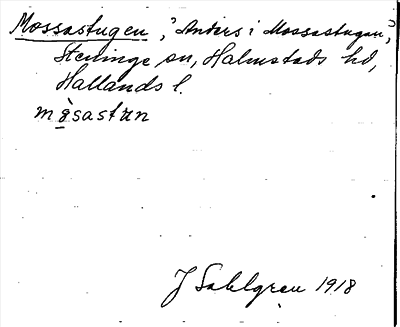 Mossastugen, "Anders i Mossastugan",
Steninge sn, Halmstads hd,
Hallands l.
màsastᵾn
J Sahlgren 1918